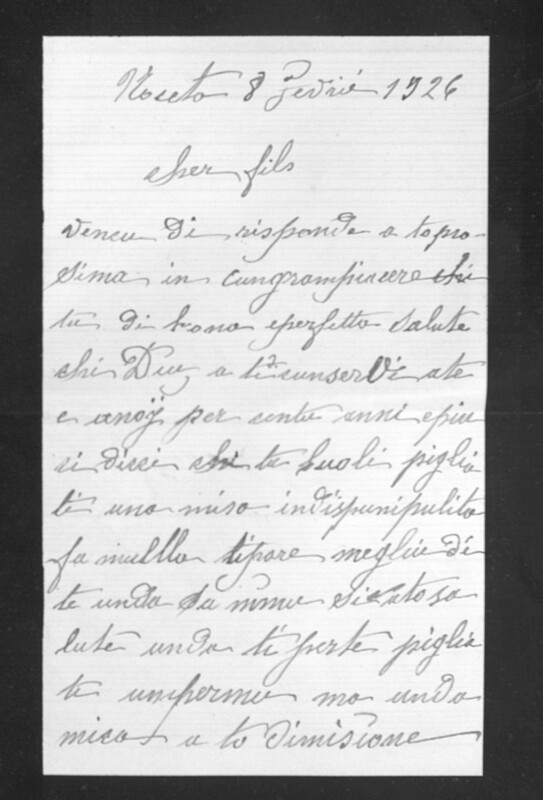 Noceta 8 Fevrié 1926
cher fils
vencu di risponde a to pro-
sima in cungrampiacere chi
tu di bona eperfetta salute
chi Diu a ti cunservi a te
e anoÿ per centu anni epiu
si dicci chi tu buoli piglia
ti una misa indispunipulita
fa nullla tipare megliu di
te unda
lute unda ti perte piglia
ti umpermu ma unda
mica a to dimisione